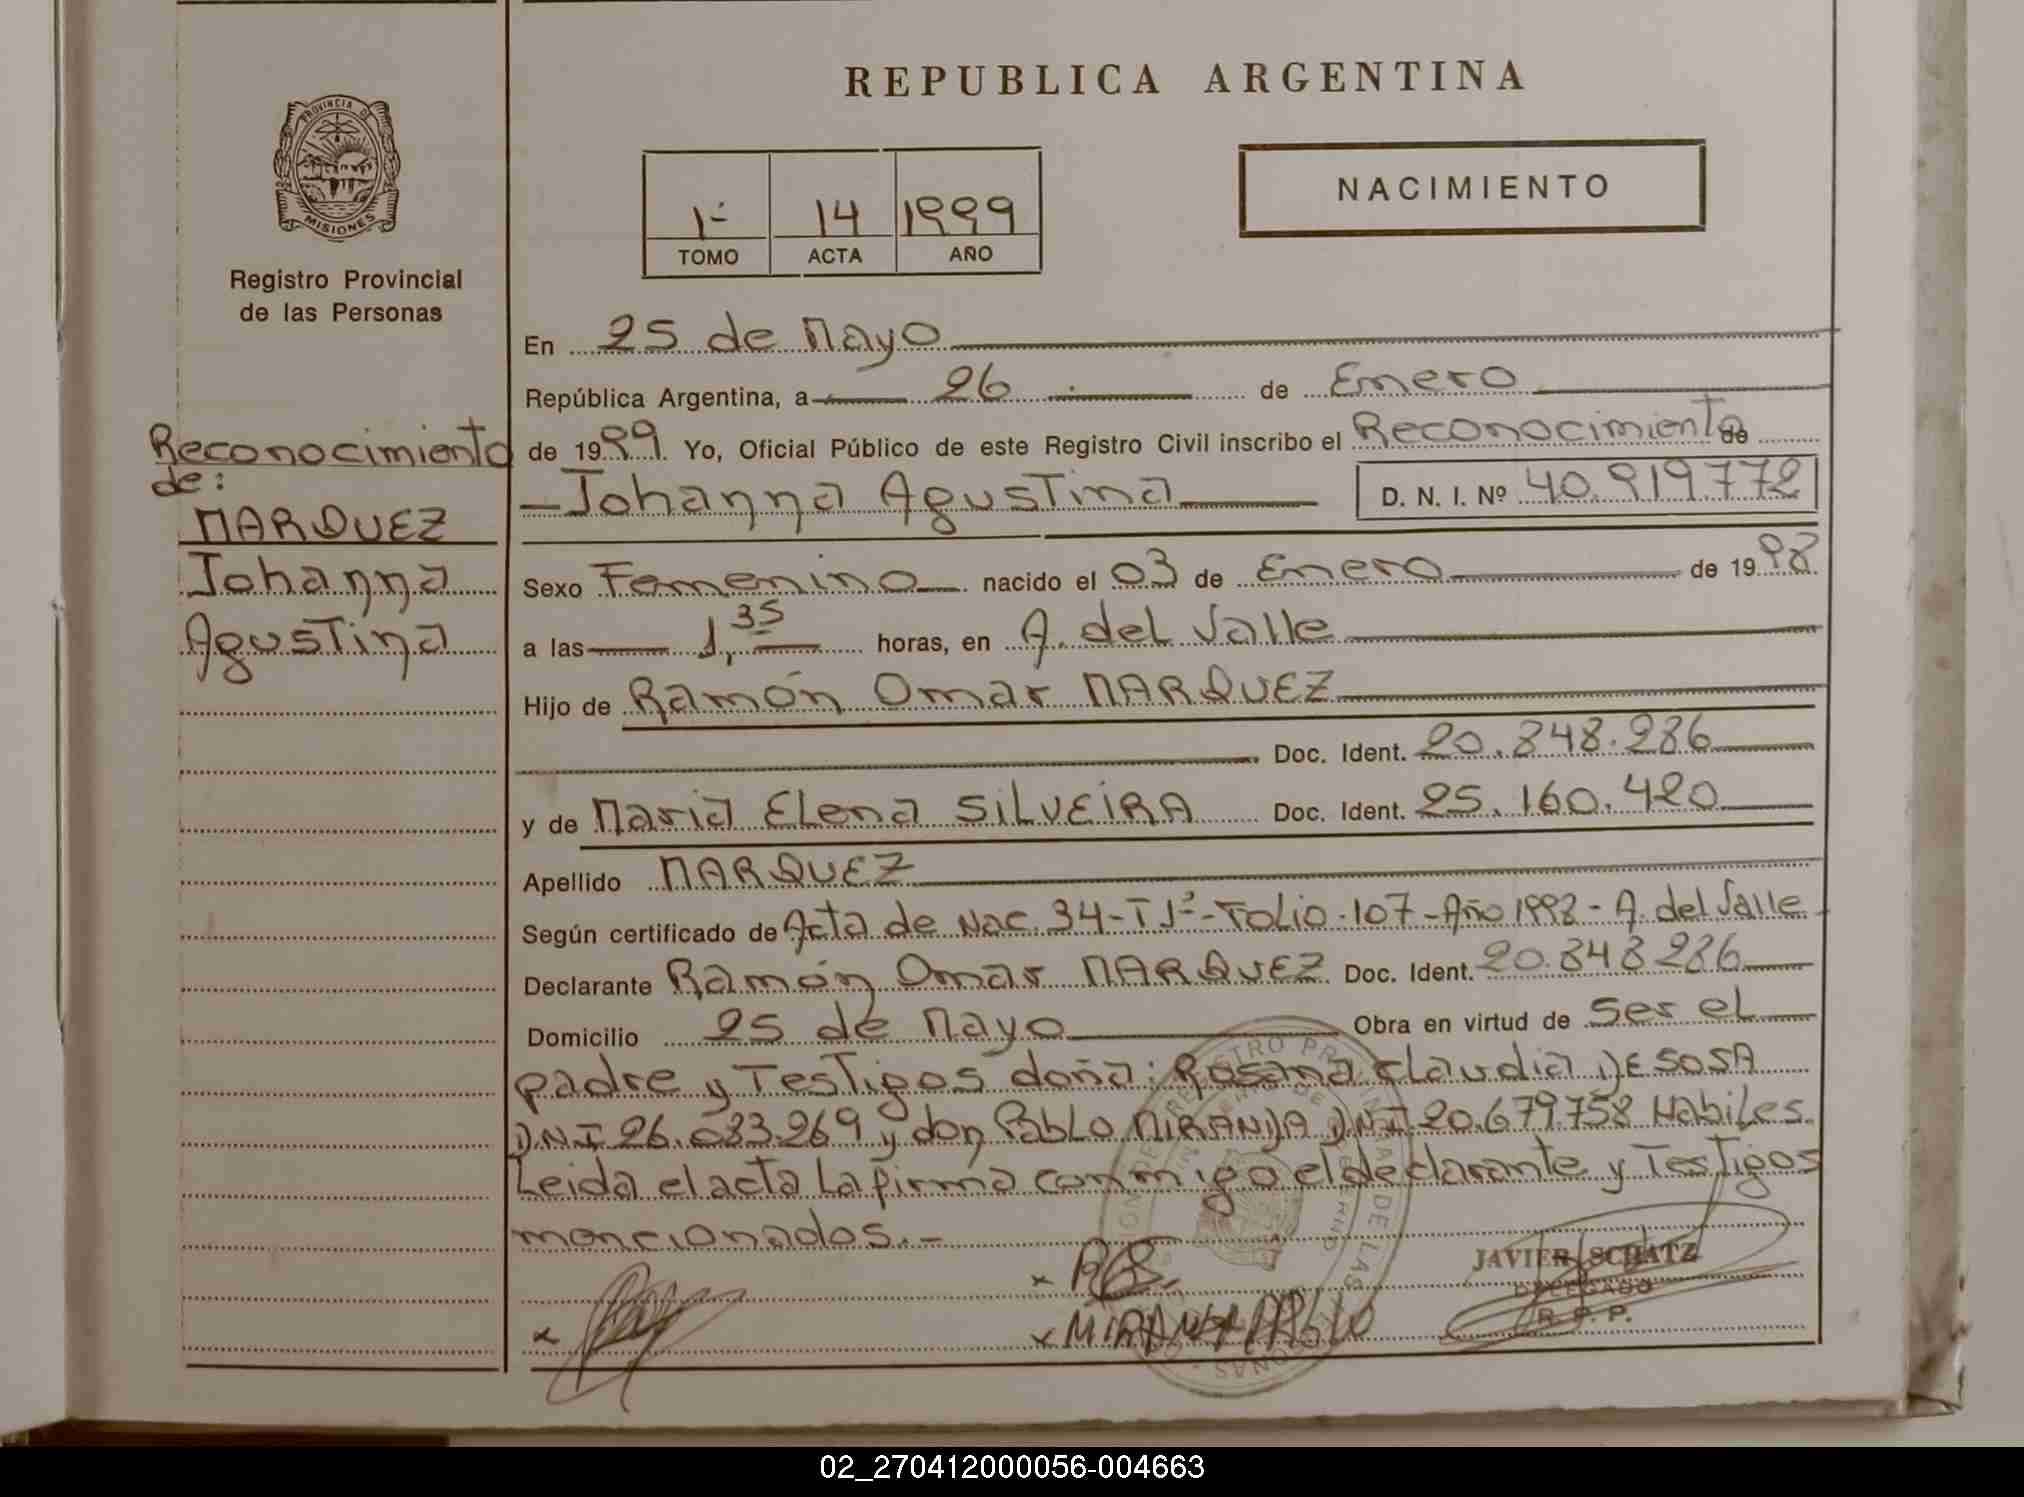 REPUBLICA ARGENTINA
PROVINCIA DE
MISIONES
Registro Provincial
de las Personas
NACIMIENTO
1- 14 1999
TOMO ACTA AÑO
En 25 de Mayo
República Argentina, a 26 de Enero
de 1999 Yo, Oficial Público de este Registro Civil inscribo el Reconocimiento de
Johanna Agustina D. N. I. Nº 40.919.772
Reconocimiento
de:
MARQUEZ
Johanna
Agustina
Sexo Femenino nacido el 03 de Enero de 1998
a las 1,35 horas, en A. del Valle
Hijo de Ramón Omar MARQUEZ
Doc. Ident. 20.848.286
y de Maria Elena SILVEIRA Doc. Ident. 25.160.420
Apellido MARQUEZ
Según certificado de Acta de Nac. 34-T1º-Folio-107-Año 1998-A. del Valle
Declarante Ramón Omar MARQUEZ Doc. Ident. 20.848.286
Domicilio 25 de Mayo Obra en virtud de ser el
padre y Testigos doña: Rosana Claudia DE SOSA
D.N.I 26.033.269 y don Pablo MIRANDA D.N.I 20.679.758 Habiles.
Leida el acta La firma conmigo el declarante y Testigos
mencionados.-
JAVIER SCHATZ
DELEGADO
R. P. P.
x MIRANDA PABLO
02_270412000056-004663